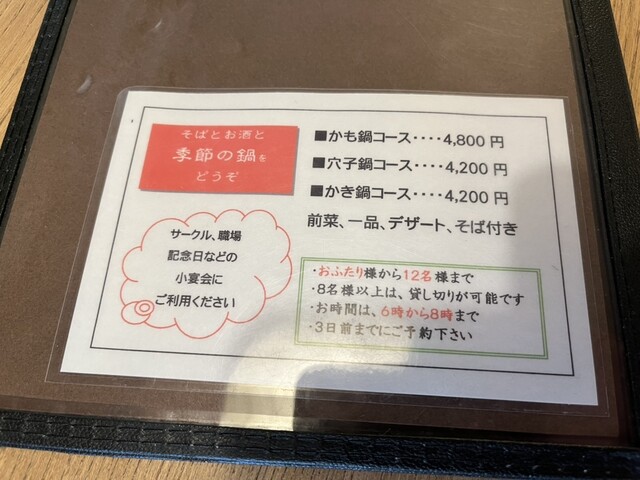 そばとお酒と
季節の鍋を
どうぞ
■かも鍋コース‥‥4,800円
■穴子鍋コース‥‥4,200円
■かき鍋コース‥‥4,200円
前菜、一品、デザート、そば付き
サークル、職場
記念日などの
小宴会に
ご利用ください
・おふたり様から12名様まで
・8名様以上は、貸し切りが可能です
・お時間は、6時から8時まで
・3日前までにご予約下さい